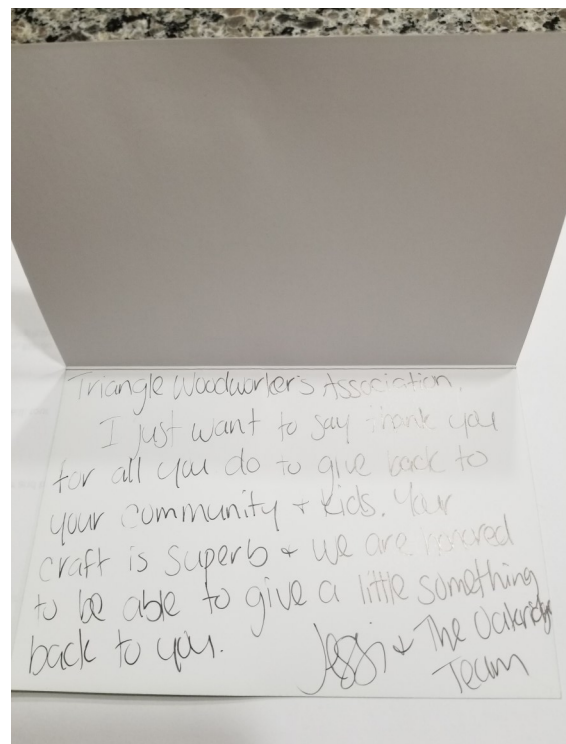 Triangle Woodworker's Association,
I just want to say thank you
for all you do to give back to
your community + kids. Your
craft is superb + we are honored
to be able to give a little something
back to you.
Jessi + The Oakridge
Team